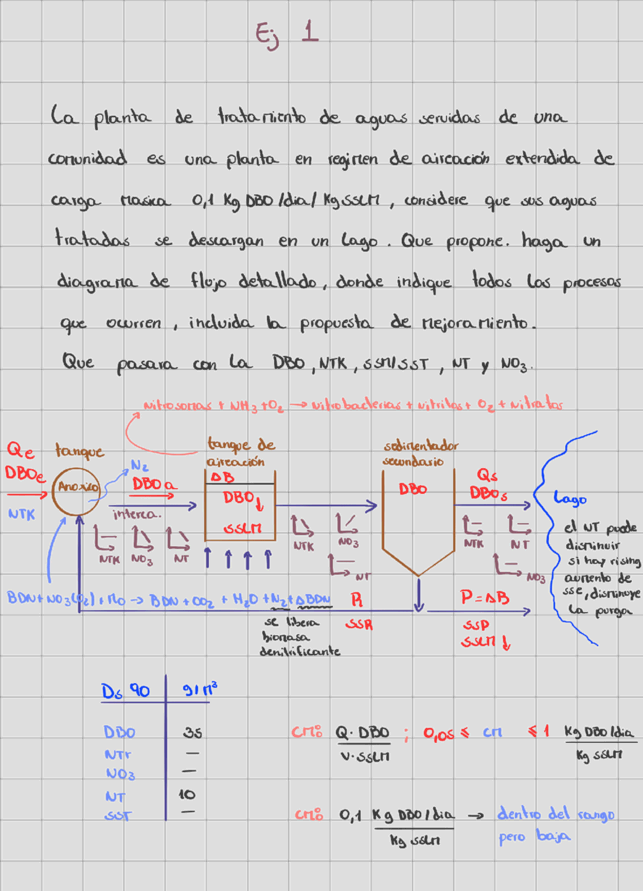 Ej 1
La planta de tratamiento de aguas servidas de una
comunidad es una planta en regimen de aireación extendida de
carga masica 0,1 Kg DBO/dia/KgSSLM, considere que sus aguas
tratadas se descargan en un Lago. Que propone. haga un
diagrama de flujo detallado, donde indique todos los procesos
que ocurren, incluida la propuesta de mejoramiento.
Que pasara con la DBO, NTK, SSM/SST, NT y NO3.
nitrosomas + NH3 + O2 → nitrobacterias + nitritos + O2 + nitratos
Qe
DBOe
NTK
tanque
Anoxico
N2
DBOa
interca.
NTK
NO3
NT
tanque de
aireación
ΔB
DBO↓
SSLM
NTK
NO3
NT
sedimentador
secundario
DBO
Qs
DBOs
NTK
NT
NO3
Lago
el NT puede
disminuir
si hay rising
aumento de
SSe, disminuye
la purga
→ BDN + CO2 + H2O + N2 + ΔBDN
se libera
biomasa
denitrificante
R
SSR
P = ΔB
SSP
SSLM ↓
Ds 90 g/m³
DBO 35
NTK —
NO3 —
NT 10
SST —
CM: Q·DBO / V·SSLM ; 0,05 ≤ CM ≤ 1 Kg DBO/dia / Kg SSLM
CM: 0,1 Kg DBO/dia / Kg SSLM → dentro del rango
pero baja